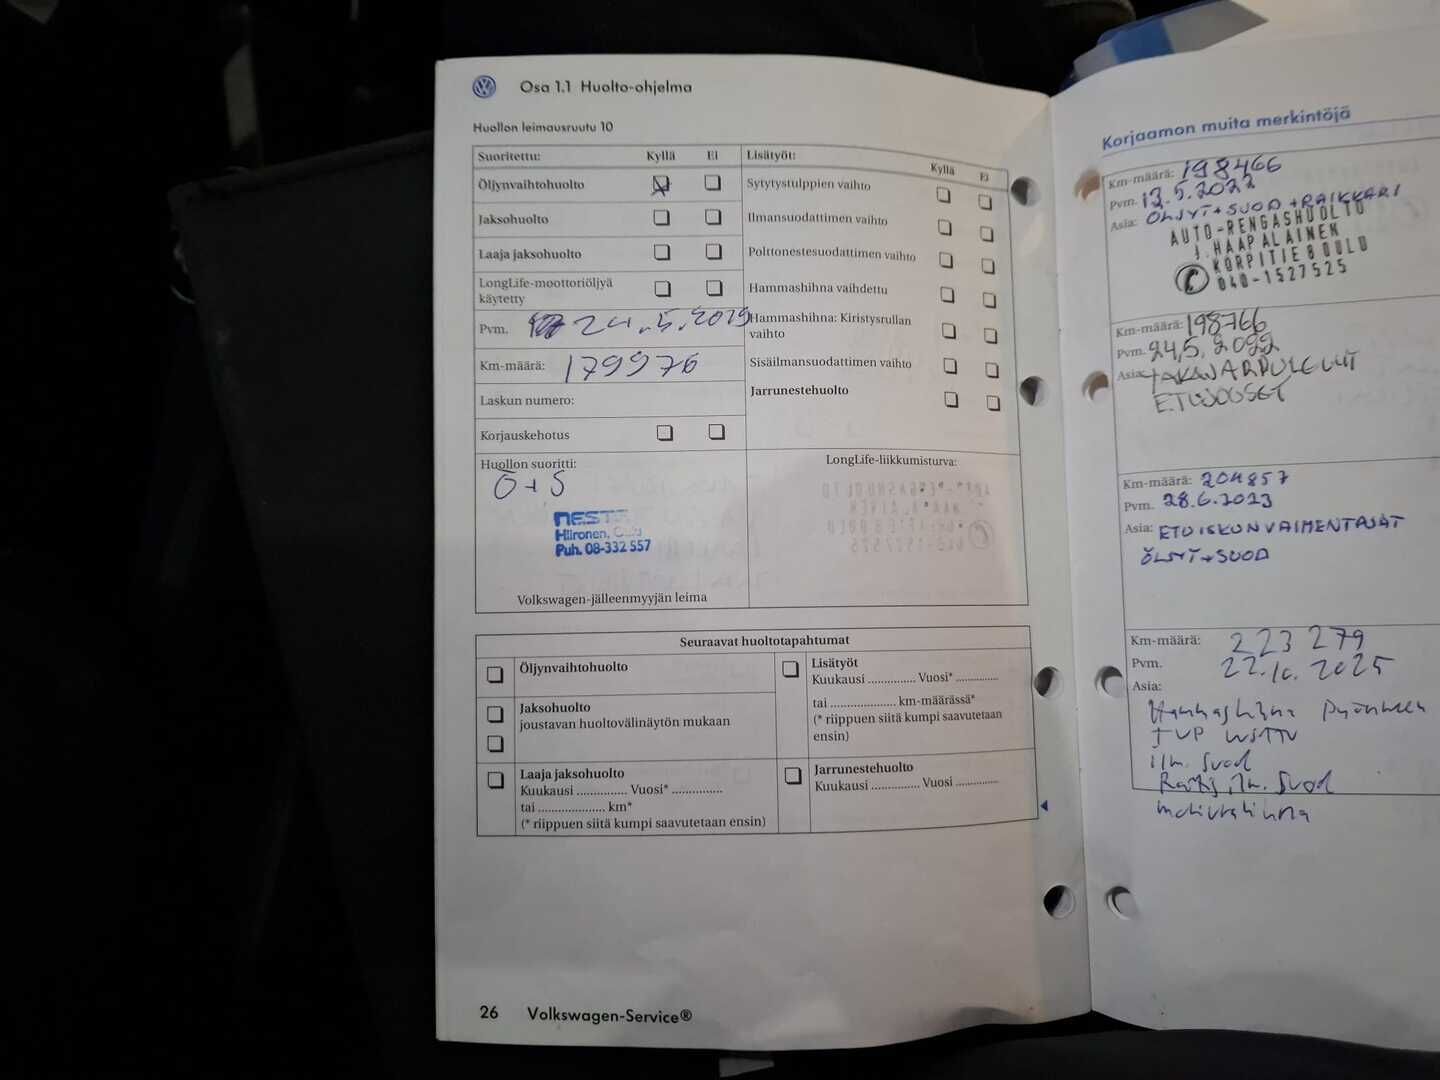 Osa 1.1 Huolto-ohjelma
Huollon leimausruutu 10
Suoritettu: Kyllä Ei
Öljynvaihtohuolto
Jaksohuolto
Laaja jaksohuolto
LongLife-moottoriöljyä
käytetty
Pvm. 24.5.2019
Km-määrä: 179976
Laskun numero:
Korjauskehotus
Huollon suoritti:
Ö+S
neste
Hiironen, Oulu
Puh. 08-332 557
Volkswagen-jälleenmyyjän leima
Lisätyöt: Kyllä Ei
Sytytystulppien vaihto
Ilmansuodattimen vaihto
Polttonestesuodattimen vaihto
Hammashihna vaihdettu
Hammashihna: Kiristysrullan
vaihto
Sisäilmansuodattimen vaihto
Jarrunestehuolto
LongLife-liikkumisturva:
Seuraavat huoltotapahtumat
Öljynvaihtohuolto
Jaksohuolto
joustavan huoltovälinäytön mukaan
Laaja jaksohuolto
Kuukausi ............... Vuosi* ...............
tai .................... km*
(* riippuen siitä kumpi saavutetaan ensin)
Lisätyöt
Kuukausi .............. Vuosi* .............
tai .................... km-määrässä*
(* riippuen siitä kumpi saavutetaan
ensin)
Jarrunestehuolto
Kuukausi .............. Vuosi .............
26 Volkswagen-Service®
Korjaamon muita merkintöjä
Km-määrä: 198466
Pvm. 12.5.2022
Asia: ÖLJYT+SUOD+RAIKKARI
AUTO-RENGASHUOLTO
J. HAAPALAINEN
KORPITIE 8 OULU
040-1527525
Km-määrä: 198766
Pvm. 24,5, 2022
Asia: TAKAJARRULEVYT
Km-määrä: 204857
Pvm. 28.6.2023
Asia: ETUISKUNVAIMENTAJAT
ÖLJYT+SUOD
Km-määrä: 223 279
Pvm. 22.10.2025
Asia:
Hammashihna
ilm. suod
Raitis, ilm. suod